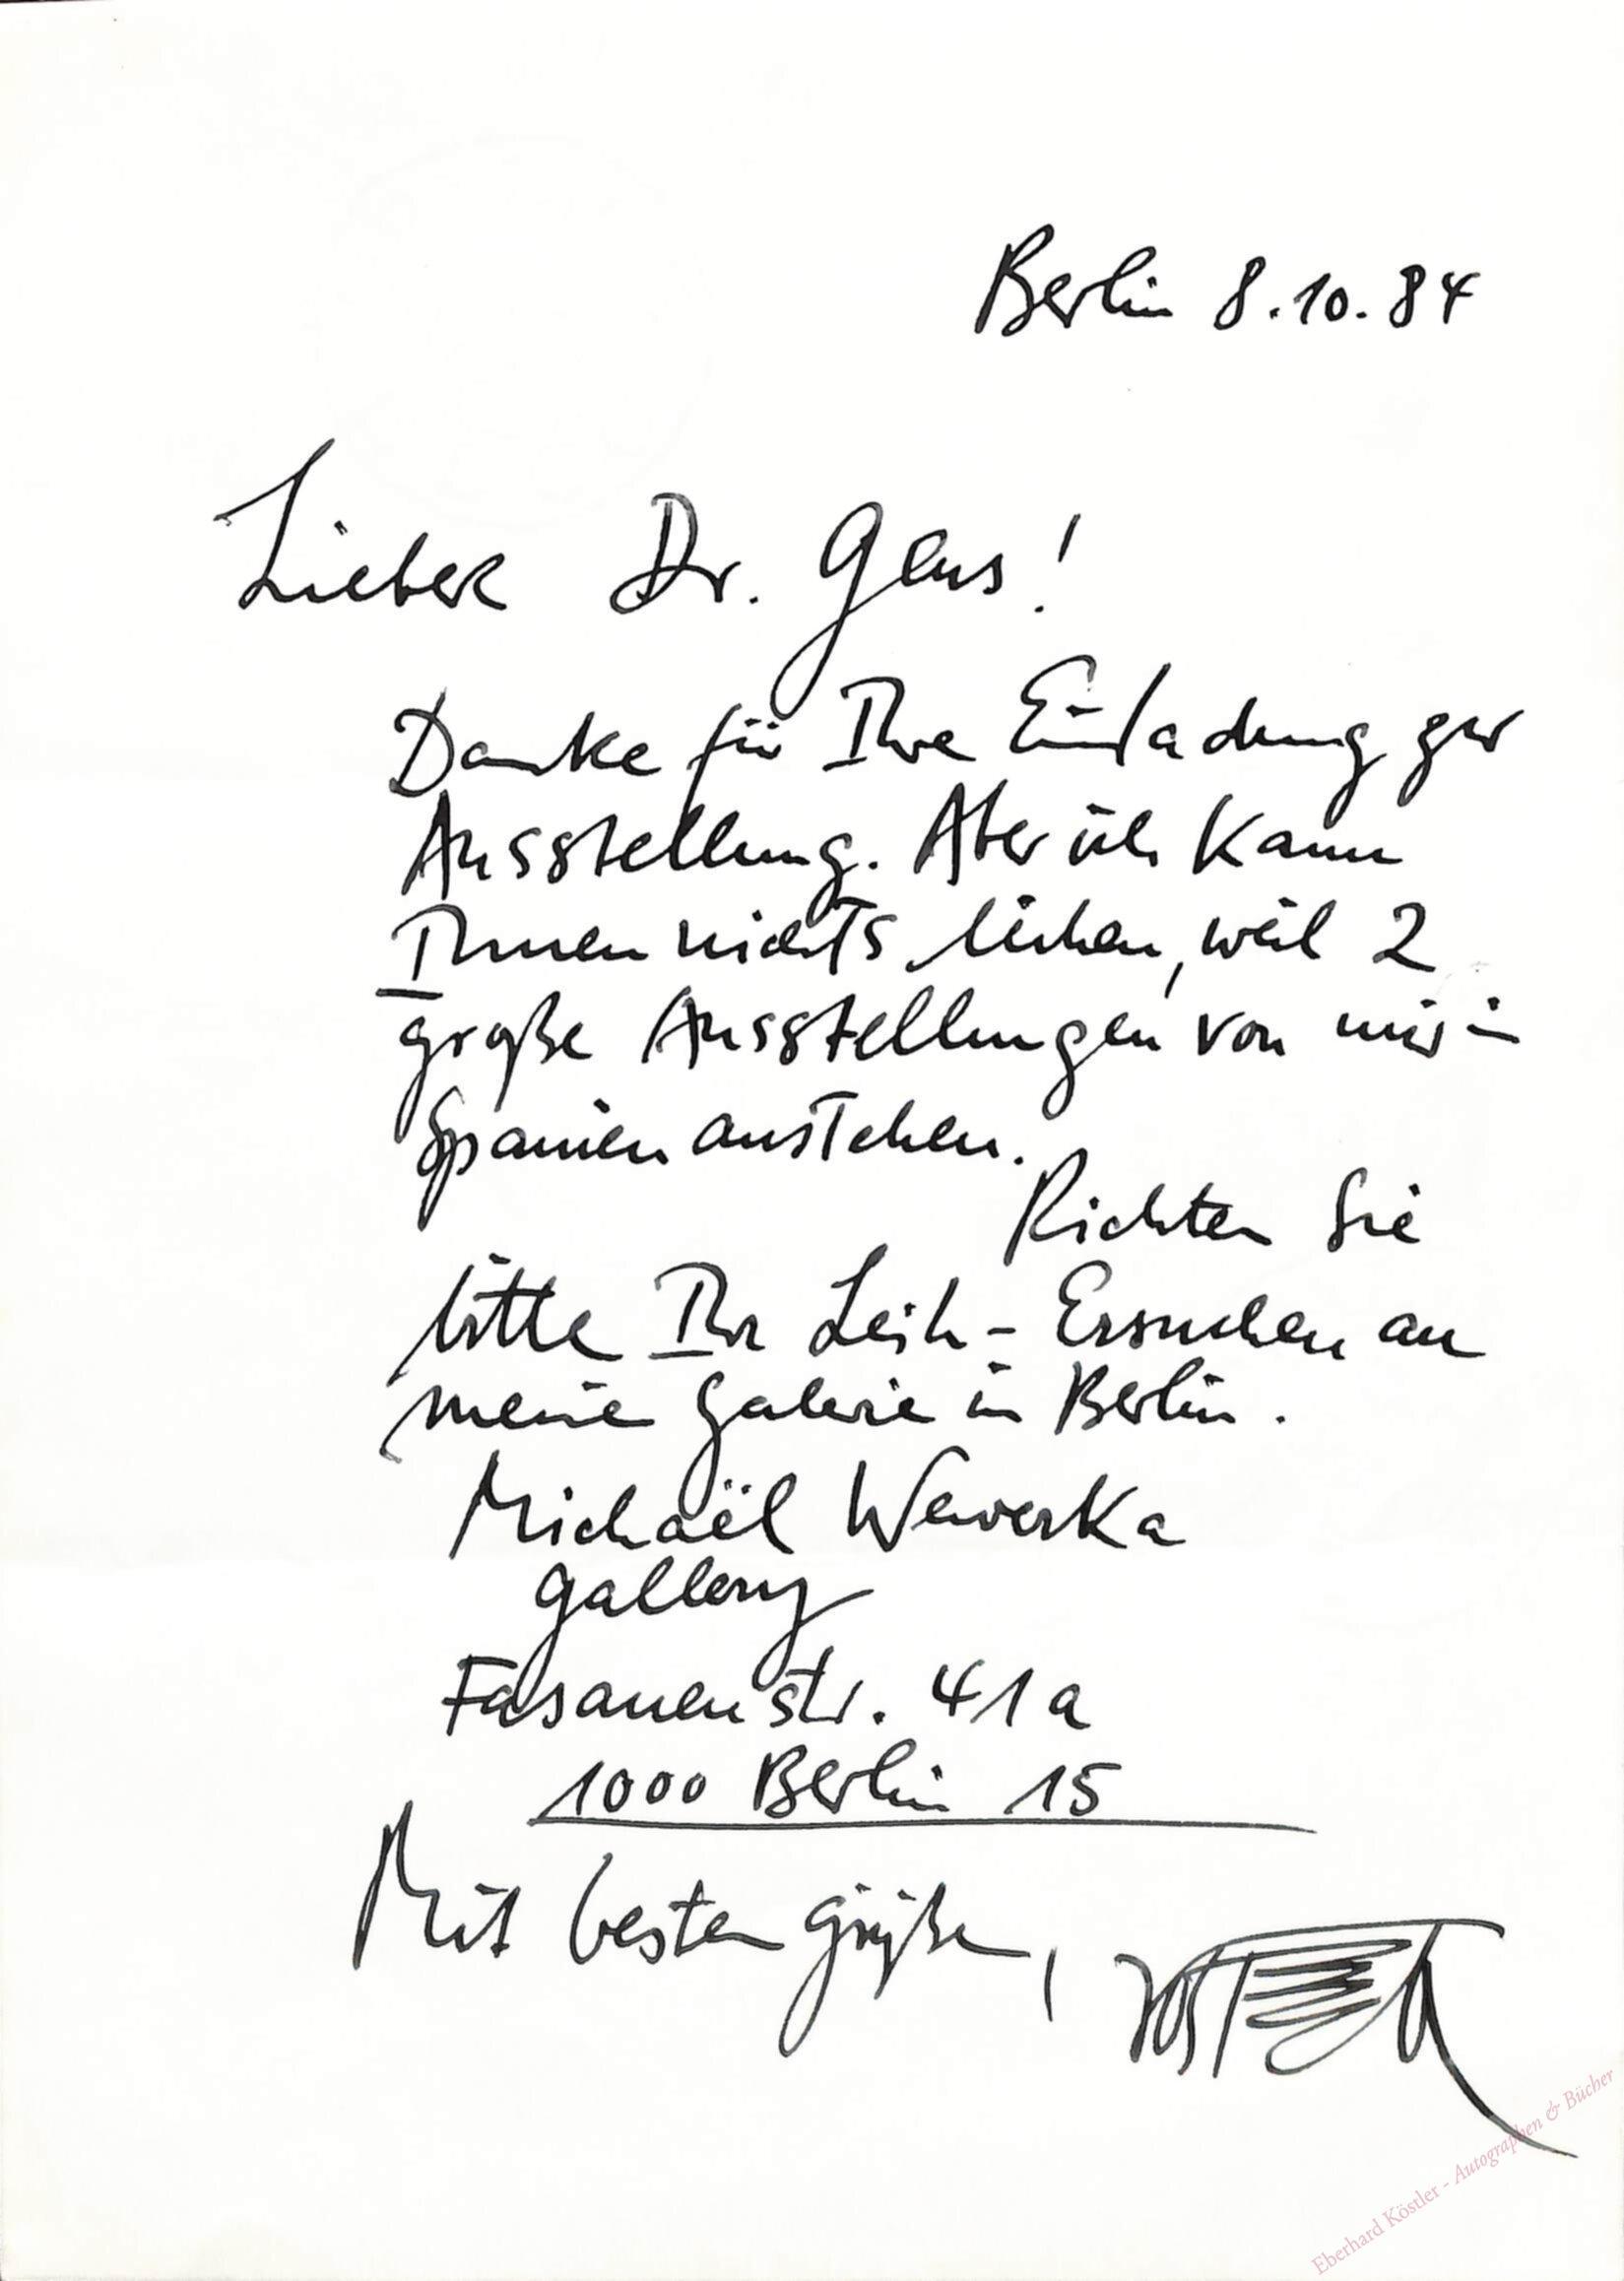 Berlin 8.10.84
Lieber Dr. Glaus!
Danke für Ihre Einladung zur
Ausstellung. Aber ich kann
Ihnen nichts leihen, weil 2
große Ausstellungen von mir in
Spanien anstehen.
Richten Sie
bitte Ihr Leih-Ersuchen an
meine Galerie in Berlin.
Michaël Wewerka
Gallery
Fasanenstr. 41a
1000 Berlin 15
Mit besten Grüßen,
Vostell
Eberhard Köstler - Autographen & Bücher